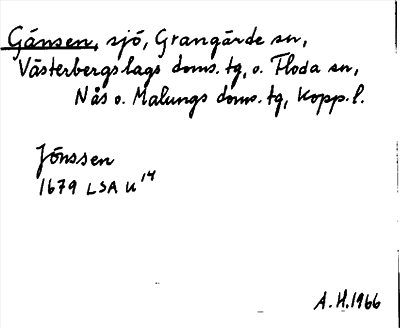 Gänsen, sjö, Grangärde sn,
Västerbergslags doms. tg, o. Floda sn,
Nås o. Malungs doms. tg, Kopp. l.
Jönssen
1679 LSA U 14
A. H. 1966